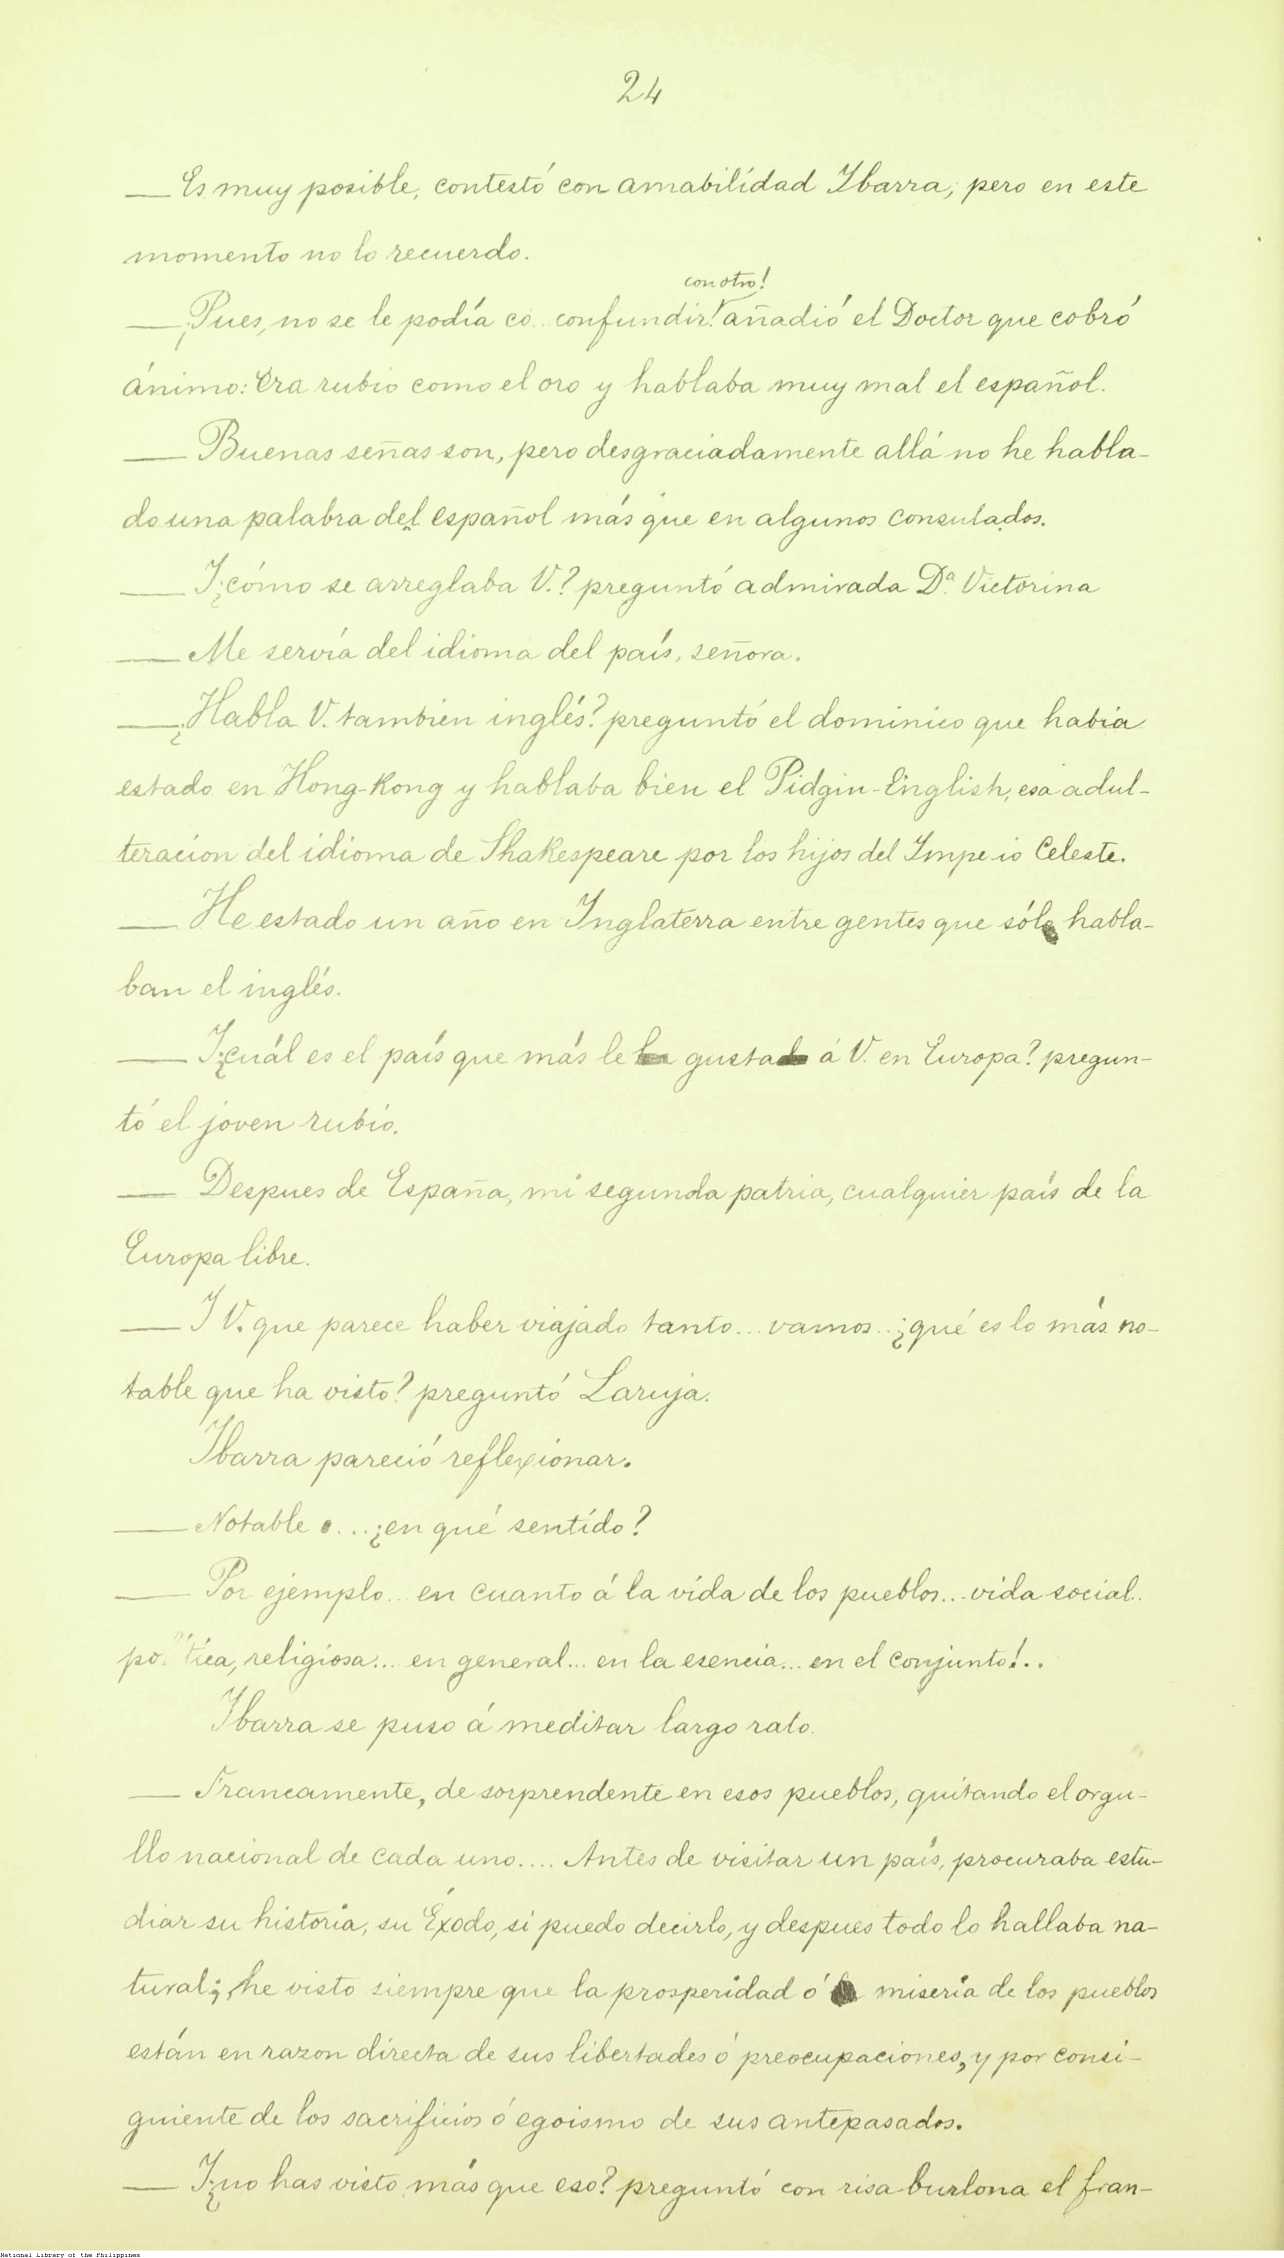 24
— Es muy posible, contestó con amabilidad Ibarra; pero en este
momento no lo recuerdo.
con otro!
— ¡Pues, no se le podía co confundir! añadió el Doctor que cobró
ánimo: Era rubio como el oro y hablaba muy mal el español.
— Buenas señas son, pero desgraciadamente allá no he habla-
do una palabra del español más que en algunos consulados.
— I ¿cómo se arreglaba V.? preguntó admirada Dª. Victorina
— Me servía del idioma del país, señora.
— ¿Habla V. tambien inglés? preguntó el dominico que habia
estado en Hong-Kong y hablaba bien el Pidgin-English, esa adul-
teracion del idioma de Shakespeare por los hijos del Impe io Celeste.
— He estado un año en Inglaterra entre gentes que sólo habla-
ban el inglés.
— I ¿cuál es el país que más le gusta á V. en Europa? pregun-
tó el joven rubio.
— Despues de España, mi segunda patria, cualquier país de la
Europa libre.
— I V. que parece haber viajado tanto... vamos.. ¿qué es lo más no-
table que ha visto? preguntó Laruja.
Ibarra pareció reflexionar.
— Notable .... ¿en qué sentido?
— Por ejemplo... en cuanto á la vida de los pueblos... vida social..
po ítica, religiosa... en general... en la esencia... en el conjunto!..
Ibarra se puso á meditar largo rato.
— Francamente, de sorprendente en esos pueblos, quitando el orgu-
llo nacional de cada uno.... Antes de visitar un país, procuraba estu-
diar su historia, su Éxodo, si puedo decirlo, y despues todo lo hallaba na-
tural; he visto siempre que la prosperidad ó miseria de los pueblos
están en razon directa de sus libertades ó preocupaciones, y por consi-
guiente de los sacrificios ó egoismo de sus antepasados.
— I ¿no has visto más que eso? preguntó con risa burlona el fran-
National Library of the Philippines